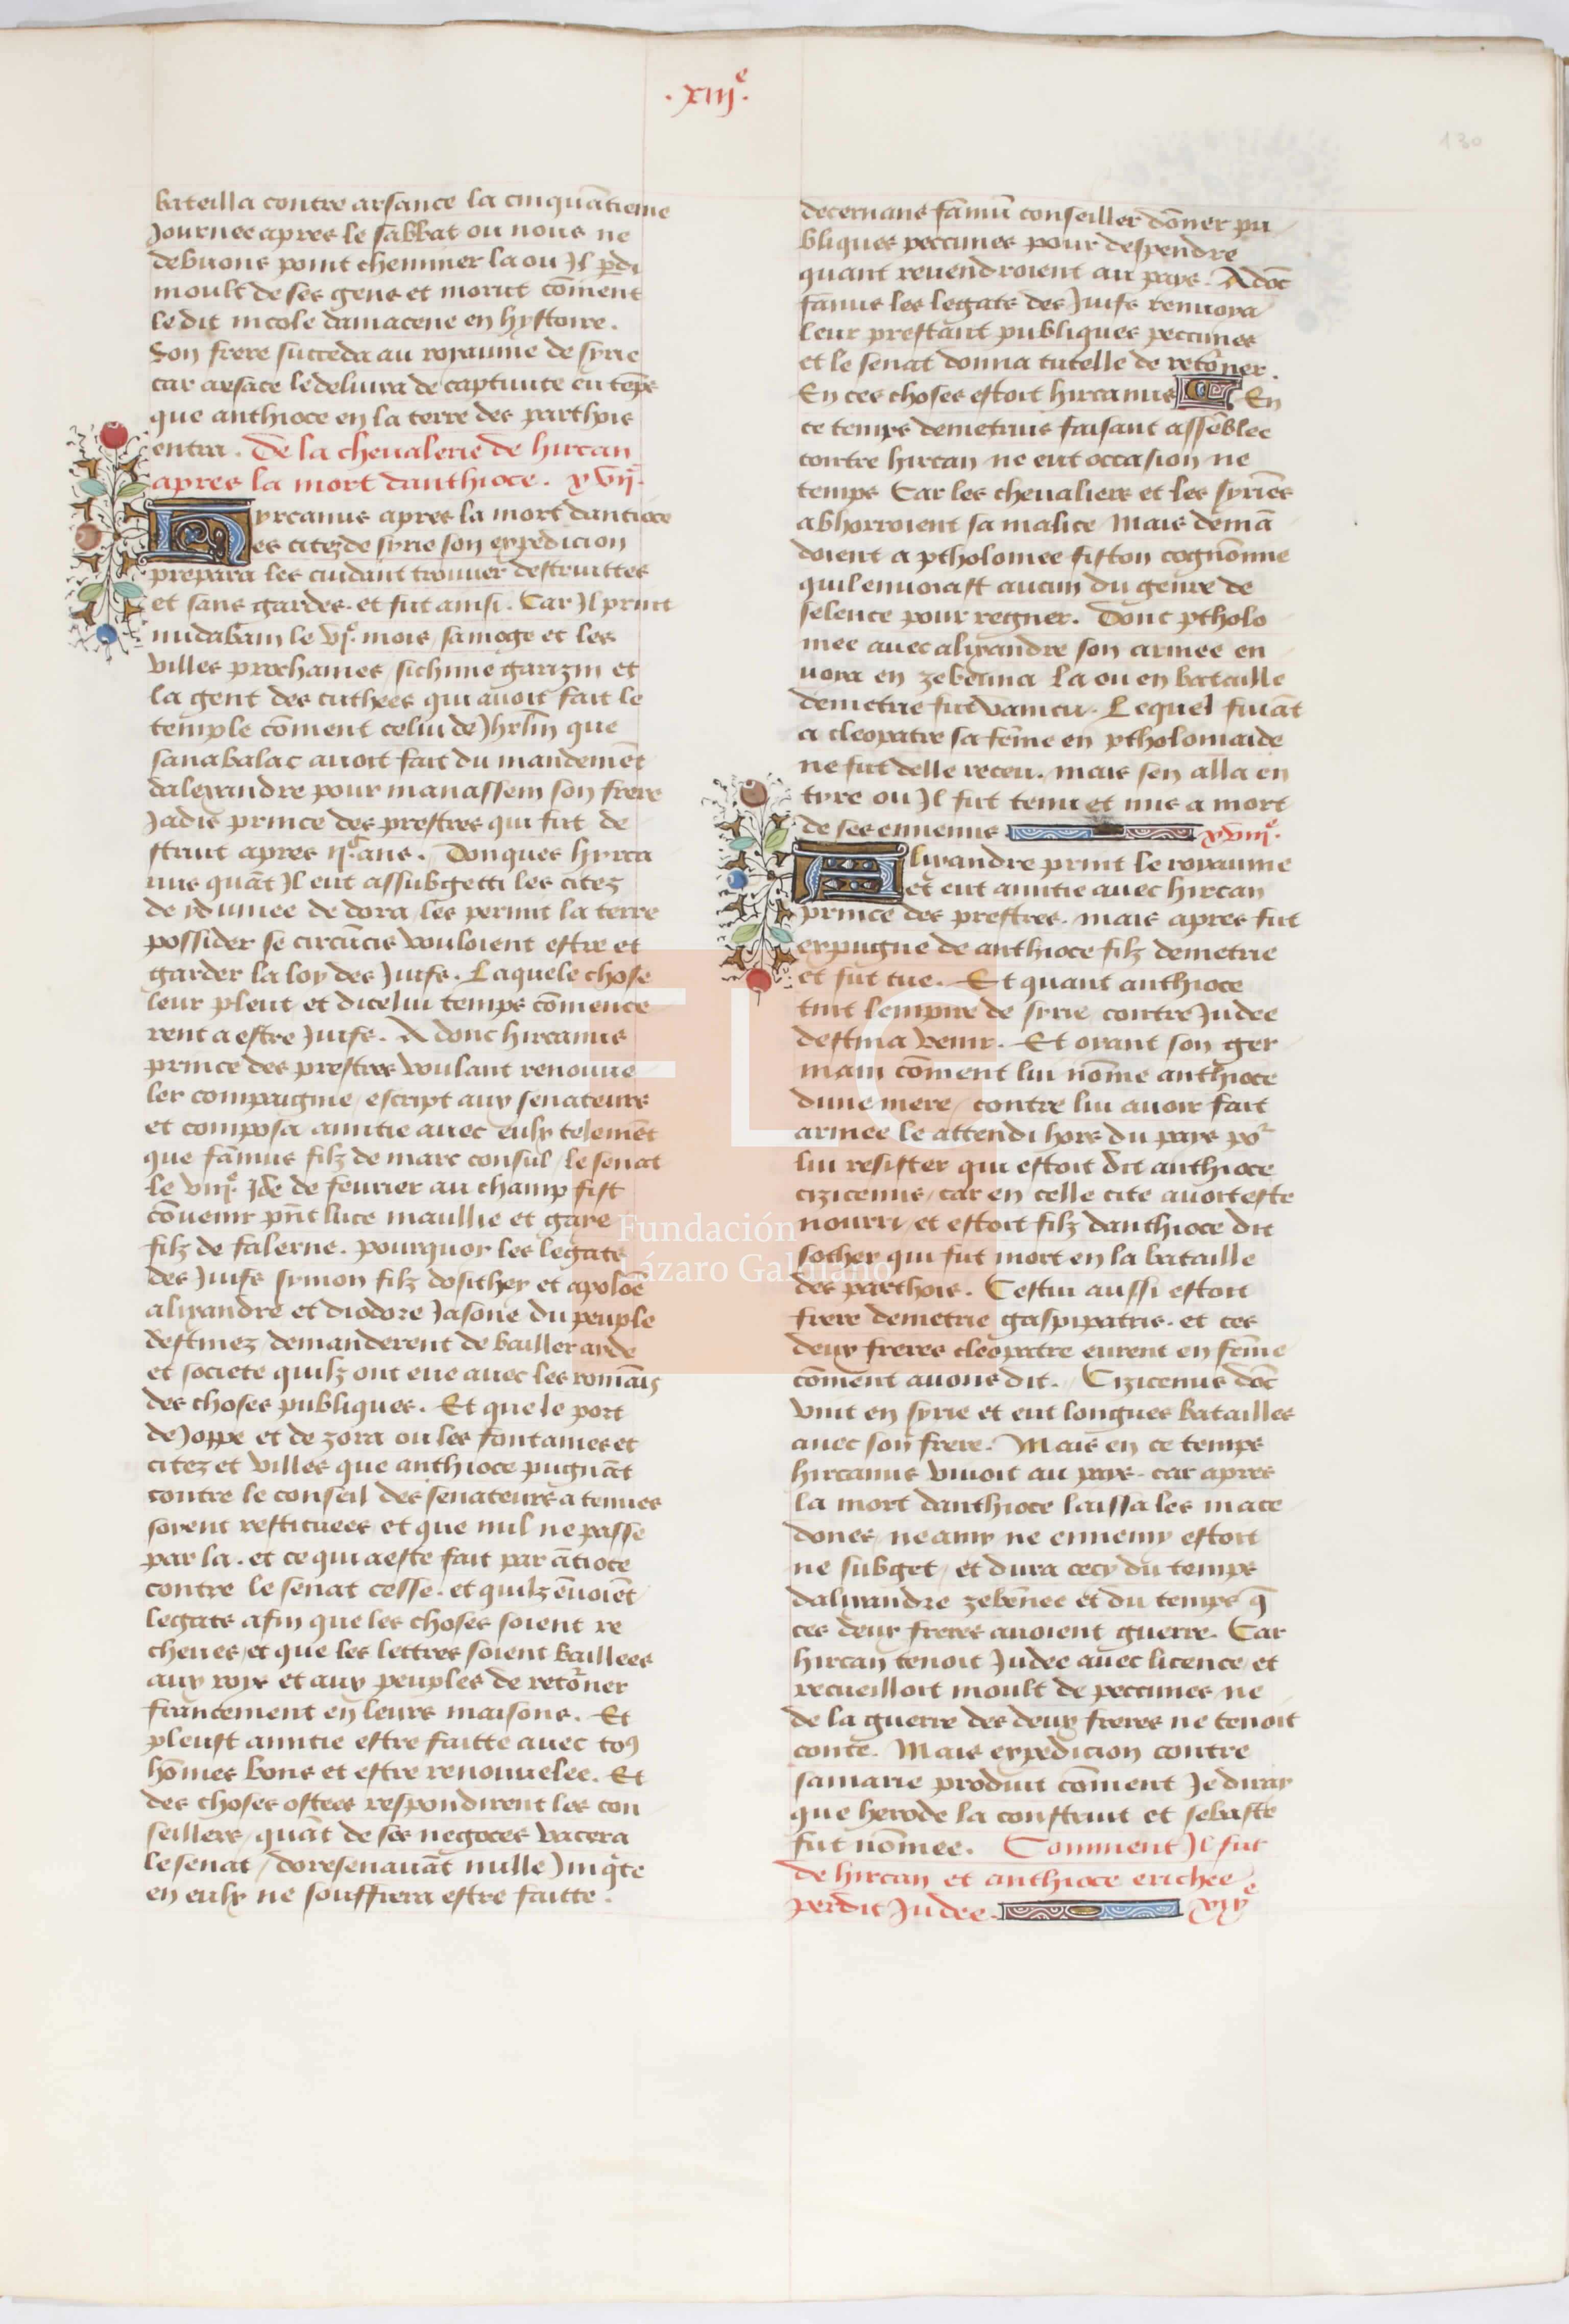 .xiij.e
130
bateilla contre arsance la cinquātieme
Journee apres le sabbat ou nous ne
debuons point cheminer la ou Il pdi
moult de ses gens et morut cōment
le dit nicole damacene en hystoire.
Son frere succeda au royaume de syrie
car arsace le deliura de captiuite en tēps
que anthioce en la terre des parthois
entra. De la cheualerie de hircan
apres la mort danthioce. xvij.
Hyrcanus apres la mort dantioce
es citez de syrie son expedicion
prepara les cuidant trouuer destruittes
et sans gardes. et fut ainsi. Car Il print
midabam le vj.e mois, samoge et les
villes prochaines, sichime garizin et
la gent des cuthees qui auoit fait le
temple cōment celui de Jhrlm que
sanabalac auoit fait du mandemēt
dalexandre pour manassem son frere
Jadis prince des prestres qui fut de
struit apres ij.c ans. Donques hyrca
nus quāt Il eut assubgetti les citez
de ydumee de dora, les permit la terre
possider se circūcis vouloient estre et
garder la loy des Juifs. Laquele chose
leur pleut et dicelui temps cōmence
rent a estre Juifs. A donc hircanus
prince des prestres voulant renouue
ler compaignie, escript aux senateurs
et composa amitie auec eulx telemēt
que famus filz de marc consul, le senat
le viij.e Jde de feurier au champ fist
cōuenir pn̄t luce maullie et gare
filz de falerne. pourquoy les legats
des Juifs symon filz dosither et apoloē
alixandre et diodore Jasone du peuple
destinez, demanderent de bailler aide
et societe quilz ont eue auec les romāis
des choses publiques. Et que le port
de Joppe et de zora ou les fontaines et
citez et villes que anthioce pugnāt
contre le conseil des senateurs a tenues
soient restituees et que nul ne passe
par la. et ce qui a este fait par ātioce
contre le senat cesse. et quilz ēuoiēt
legats afin que les choses soient re
cheues, et que les lettres soient baillees
aux roys et aux peuples de retōner
franchement en leurs maisons. Et
pleust amitie estre faitte auec to9
hōmes bons et estre renouuelee. Et
des choses ostees respondirent les con
seillers, quāt de ses negoces vacera
le senat, doresenauāt nulle Iniqte
en eulx ne souffrera estre faitte.
decernans famū conseiller dōner pu
bliques peccunes pour despendre
quant reuendroient au pays. Adōc
famus les legats des Juifs renuoya
leur prestant publiques peccunes
et le senat donna tutelle de retōner.
En ces choses estoit hircanus En
ce temps demetrius faisant assēblee
contre hircan ne eut occasion ne
temps Car les cheualiers et les syriēs
abhorroient sa malice Mais demā
doient a ptholomee fiston cognōme
quil enuoiast aucun du genre de
selence pour regner. Donc ptholo
mee auec alixandre son armee en
uoia en zebenna la ou en bataille
demetrie fut vaincu. Lequel fuiāt
a cleopatre sa fēme en ptholomaide
ne fut delle receu. mais sen alla en
tyre ou Il fut tenu et mis a mort
de ses ennemis xviij.e
Alixandre print le royaume
et eut amitie auec hircan
prince des prestres. mais apres fut
expugne de anthioce filz demetrie
et fut tue. Et quant anthioce
tint lempire de syrie contre Judee
destina venir. Et oyant son ger
main cōment lui nōme anthioce
dune mere, contre lui auoir fait
armee le attendi hors du pays por
lui resister qui estoit dit anthioce
cizicenus, car en celle cite auoit este
nourri, et estoit filz danthioce dit
sother qui fut mort en la bataille
des parthois. Cestui aussi estoit
frere demetrie gaspipatris. et ces
deux freres cleopatre eurent en fēme
cōment auons dit. Cizicenus dōc
vint en syrie et eut longues batailles
auec son frere. Mais en ce temps
hircanus viuoit au pays. car apres
la mort danthioce laissa les mace
dones, ne amy ne ennemy estoit
ne subget, et dura cecy du temps
dalixandre zebēnee et du temps q̄
ces deux freres auoient guerre. Car
hircan tenoit Judee auec licence, et
recueilloit moult de peccunes ne
de la guerre des deux freres ne tenoit
conte. Mais expedicion contre
samarie produit cōment Je diray
que herode la construit et sebaste
fut nōmee. Comment Il fut
de hircan et anthioce erichee
perdit Judee. xix.e
Fundación
Lázaro Galdiano